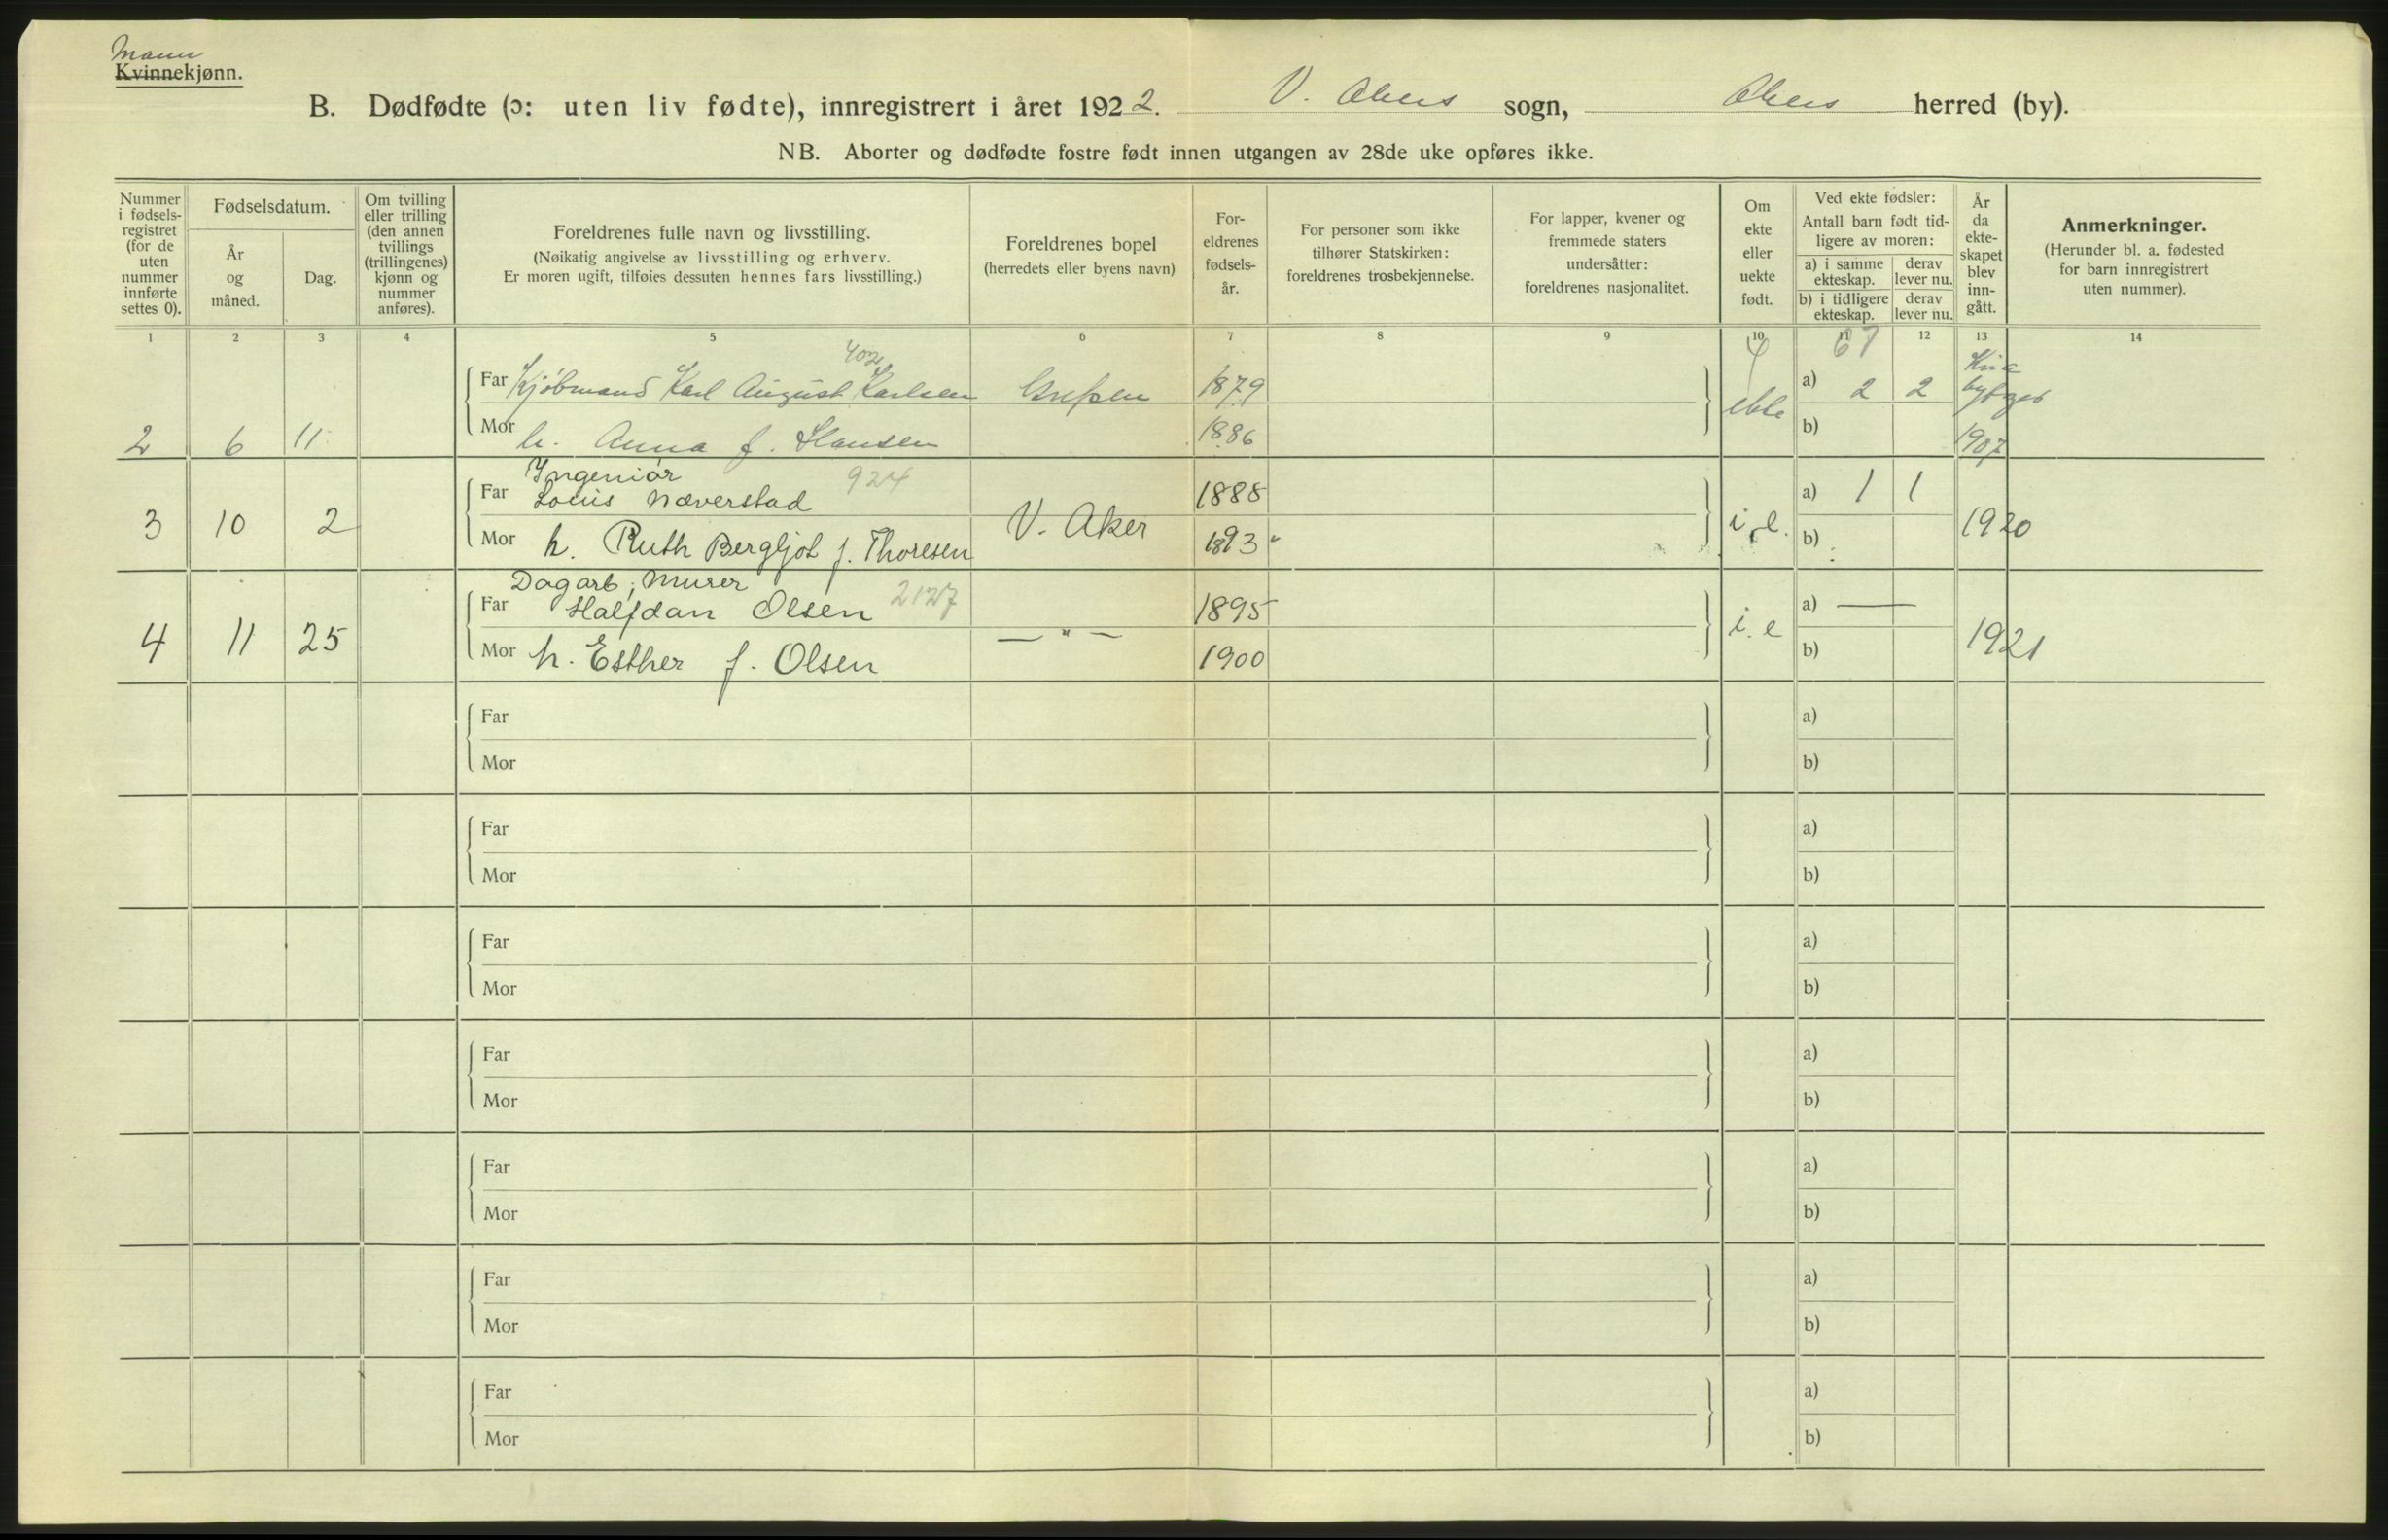 Mann
Kvinnekjønn.
B. Dødfødte (ɔ: uten liv fødte), innregistrert i året 1922. V. Akers sogn, Akers herred (by).
NB. Aborter og dødfødte fostre født innen utgangen av 28de uke opføres ikke.
Nummer i fødselsregistret (for de uten nummer innførte settes 0).
Fødselsdatum.
År og måned.
Dag.
Om tvilling eller trilling (den annen tvillings (trillingenes) kjønn og nummer anføres).
Foreldrenes fulle navn og livsstilling.
(Nøikatig angivelse av livsstilling og erhverv.
Er moren ugift, tilføies dessuten hennes fars livsstilling.)
Foreldrenes bopel
(herredets eller byens navn)
Foreldrenes fødselsår.
For personer som ikke tilhører Statskirken: foreldrenes trosbekjennelse.
For lapper, kvener og fremmede staters undersåtter: foreldrenes nasjonalitet.
Om ekte eller uekte født.
Ved ekte fødsler:
Antall barn født tidligere av moren:
a) i samme ekteskap. derav lever nu.
b) i tidligere ekteskap. derav lever nu.
År da ekteskapet blev inngått.
Anmerkninger.
(Herunder bl. a. fødested for barn innregistrert uten nummer).
1 2 3 4 5 6 7 8 9 10 11 12 13 14
402
Far Kjøbmand Karl August Karlsen Grefsen 1879 ekte a) 2 2
2 6 11 Mor h. Anna f. Hansen 1886 b) 1907
Ingeniør 924
Far Louis Næverstad 1888 a) 1 1
3 10 2 V. Aker i. e. 1920
Mor h. Ruth Bergljot f. Thoresen 1893 b)
Dagarb, Murer 2127
Far Halfdan Olsen 1895 a) —
4 11 25 — " — i. e 1921
Mor h. Esther f. Olsen 1900 b)
Far a)
Mor b)
Far a)
Mor b)
Far a)
Mor b)
Far a)
Mor b)
Far a)
Mor b)
Far a)
Mor b)
Far a)
Mor b)